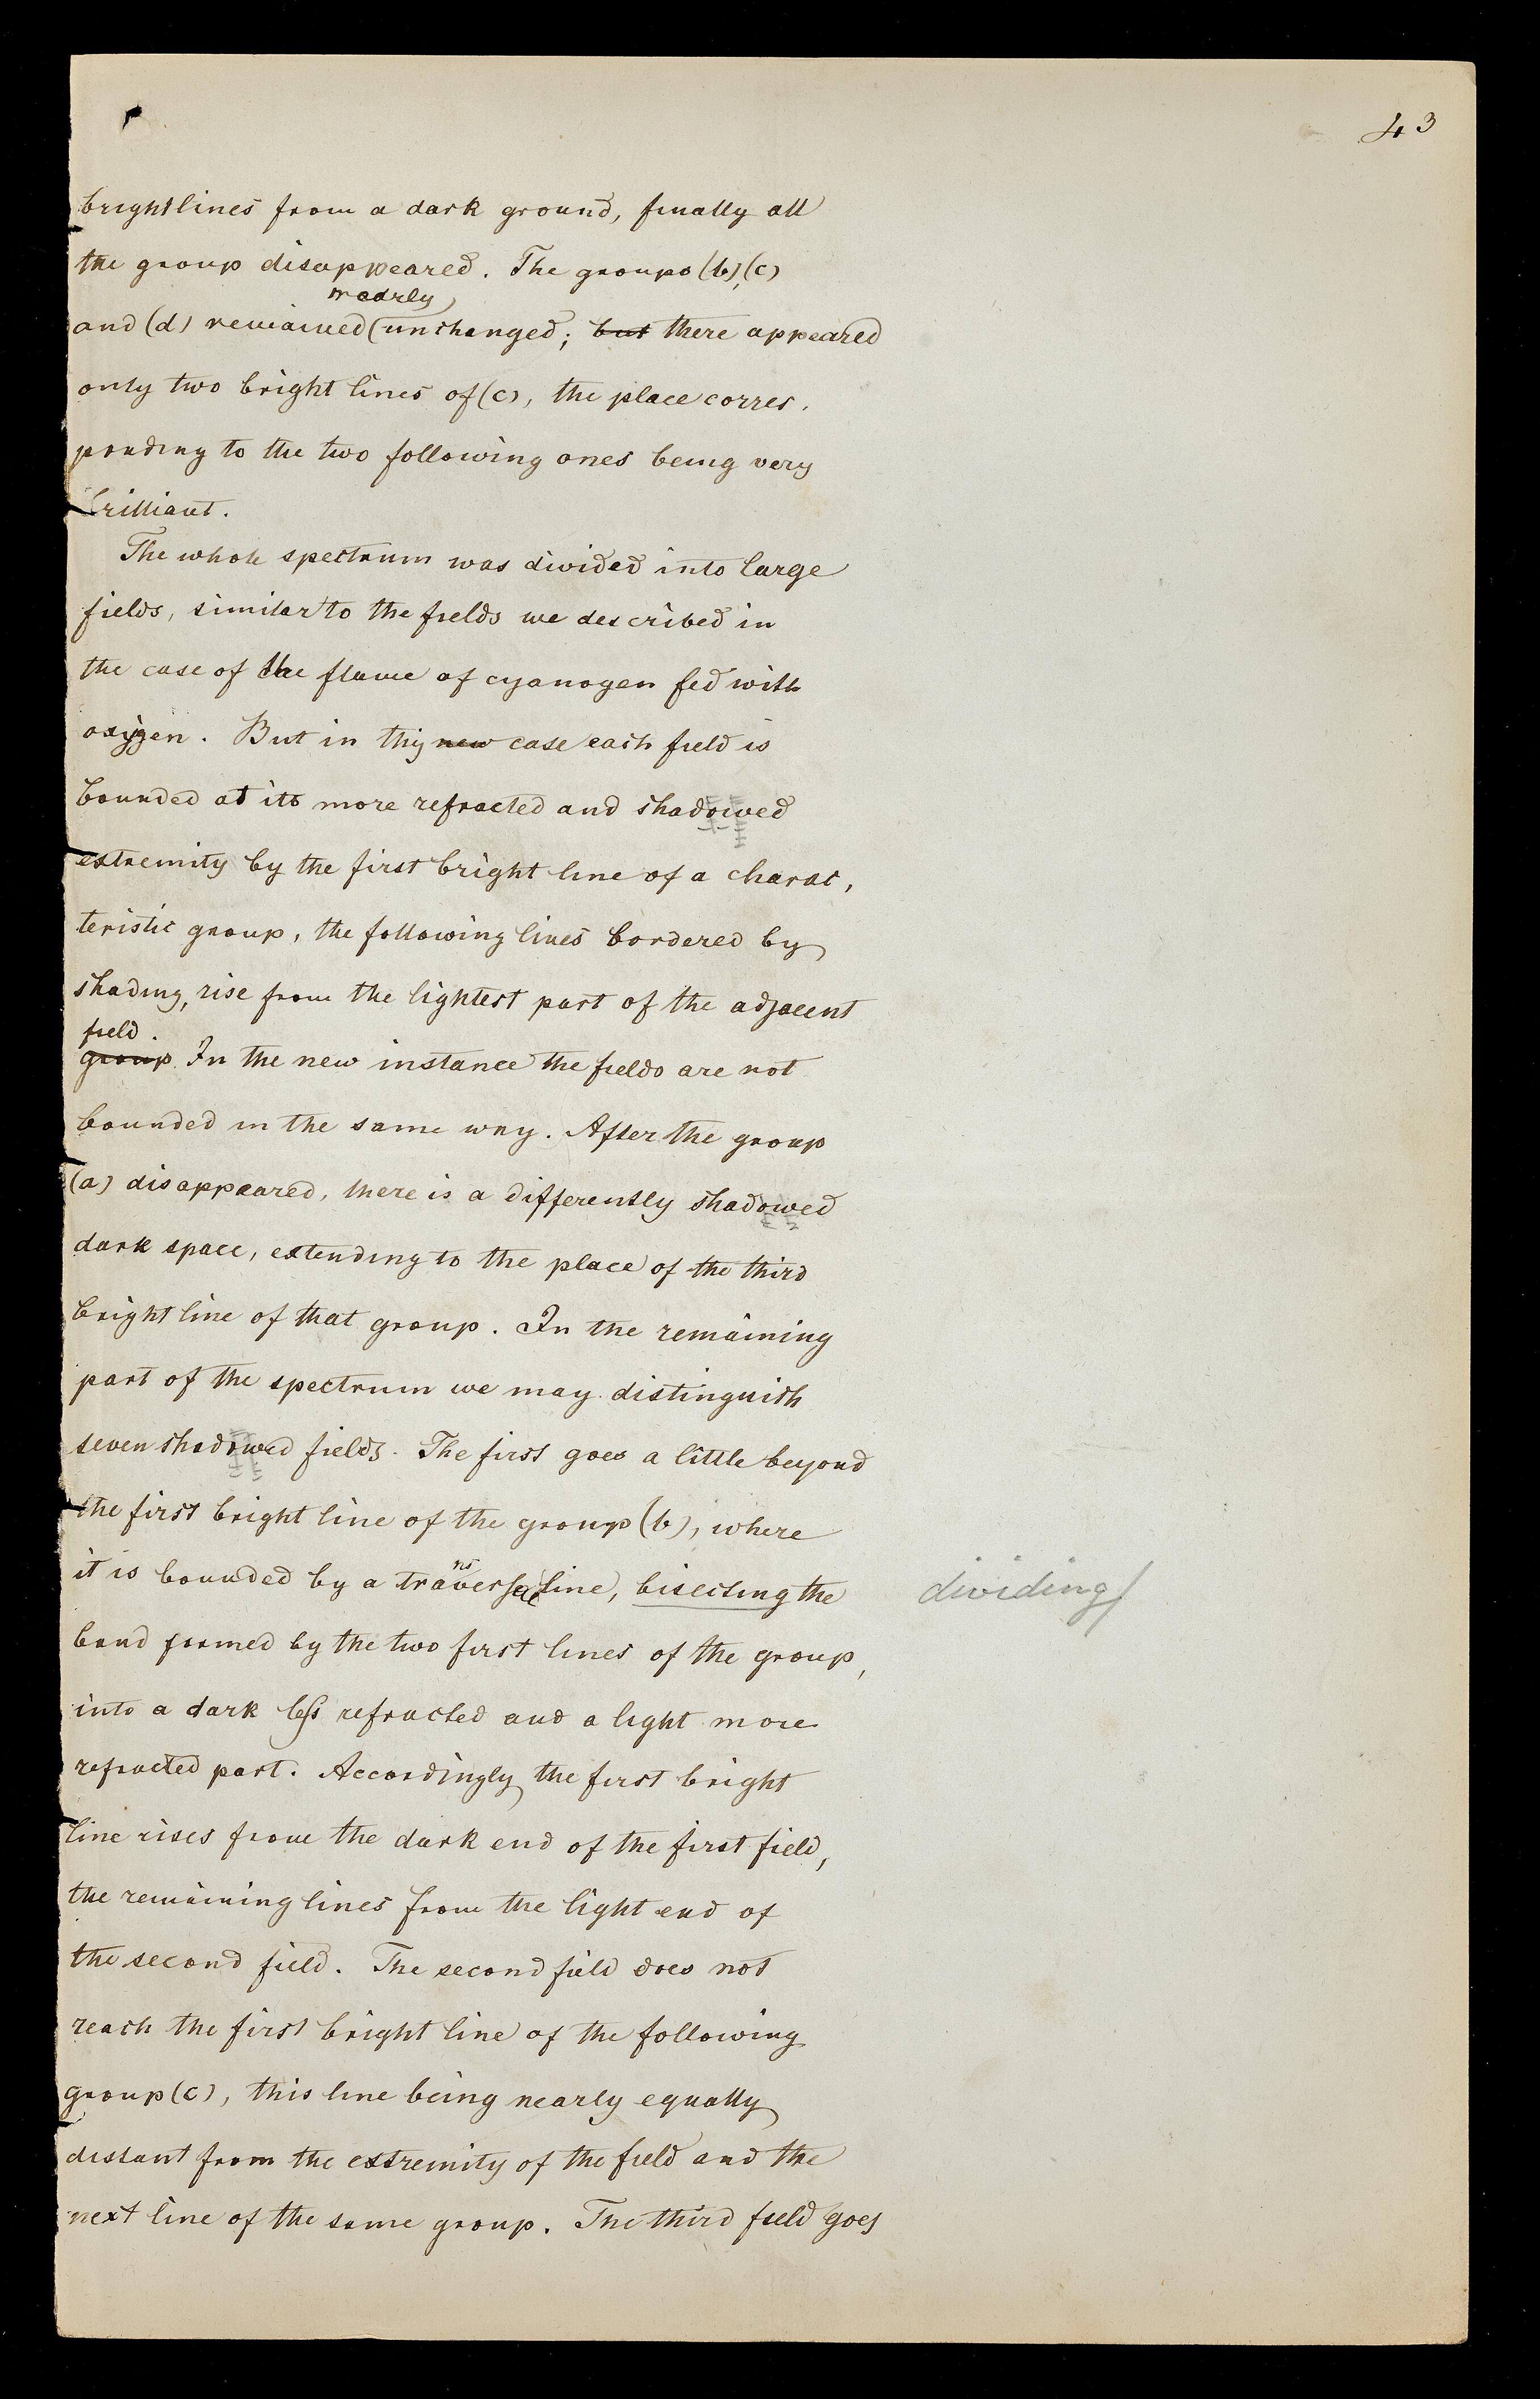 43
bright lines from a dark ground, finally all
the group disappeared. The groups (b), (c)
nearly
and (d) remained unchanged; but there appeared
only two bright lines of (c), the place corres,
ponding to the two following ones being very
brilliant.
The whole spectrum was divided into large
fields, similar to the fields we described in
the case of the flame of cyanogen fed with
oxygen. But in this new case each field is
bounded at its more refracted and shadowed
extremity by the first bright line of a charac,
teristic group, the following lines bordered by
shading, rise from the lightest part of the adjacent
field.
group In the new instance the fields are not
bounded in the same way. After the group
(a) disappeared, there is a differently shadowed
dark space, extending to the place of the third
bright line of that group. In the remaining
part of the spectrum we may distinguish
seven shadowed fields. The first goes a little beyond
the first bright line of the group (b), where
ns
it is bounded by a traversal line, bisecting the
dividing/
band formed by the two first lines of the group,
into a dark less refracted and a light more
refracted part. Accordingly the first bright
line rises from the dark end of the first field,
the remaining lines from the light end of
the second field. The second field does not
reach the first bright line of the following
group (c), this line being nearly equally
distant from the extremity of the field and the
next line of the same group. The third field goes